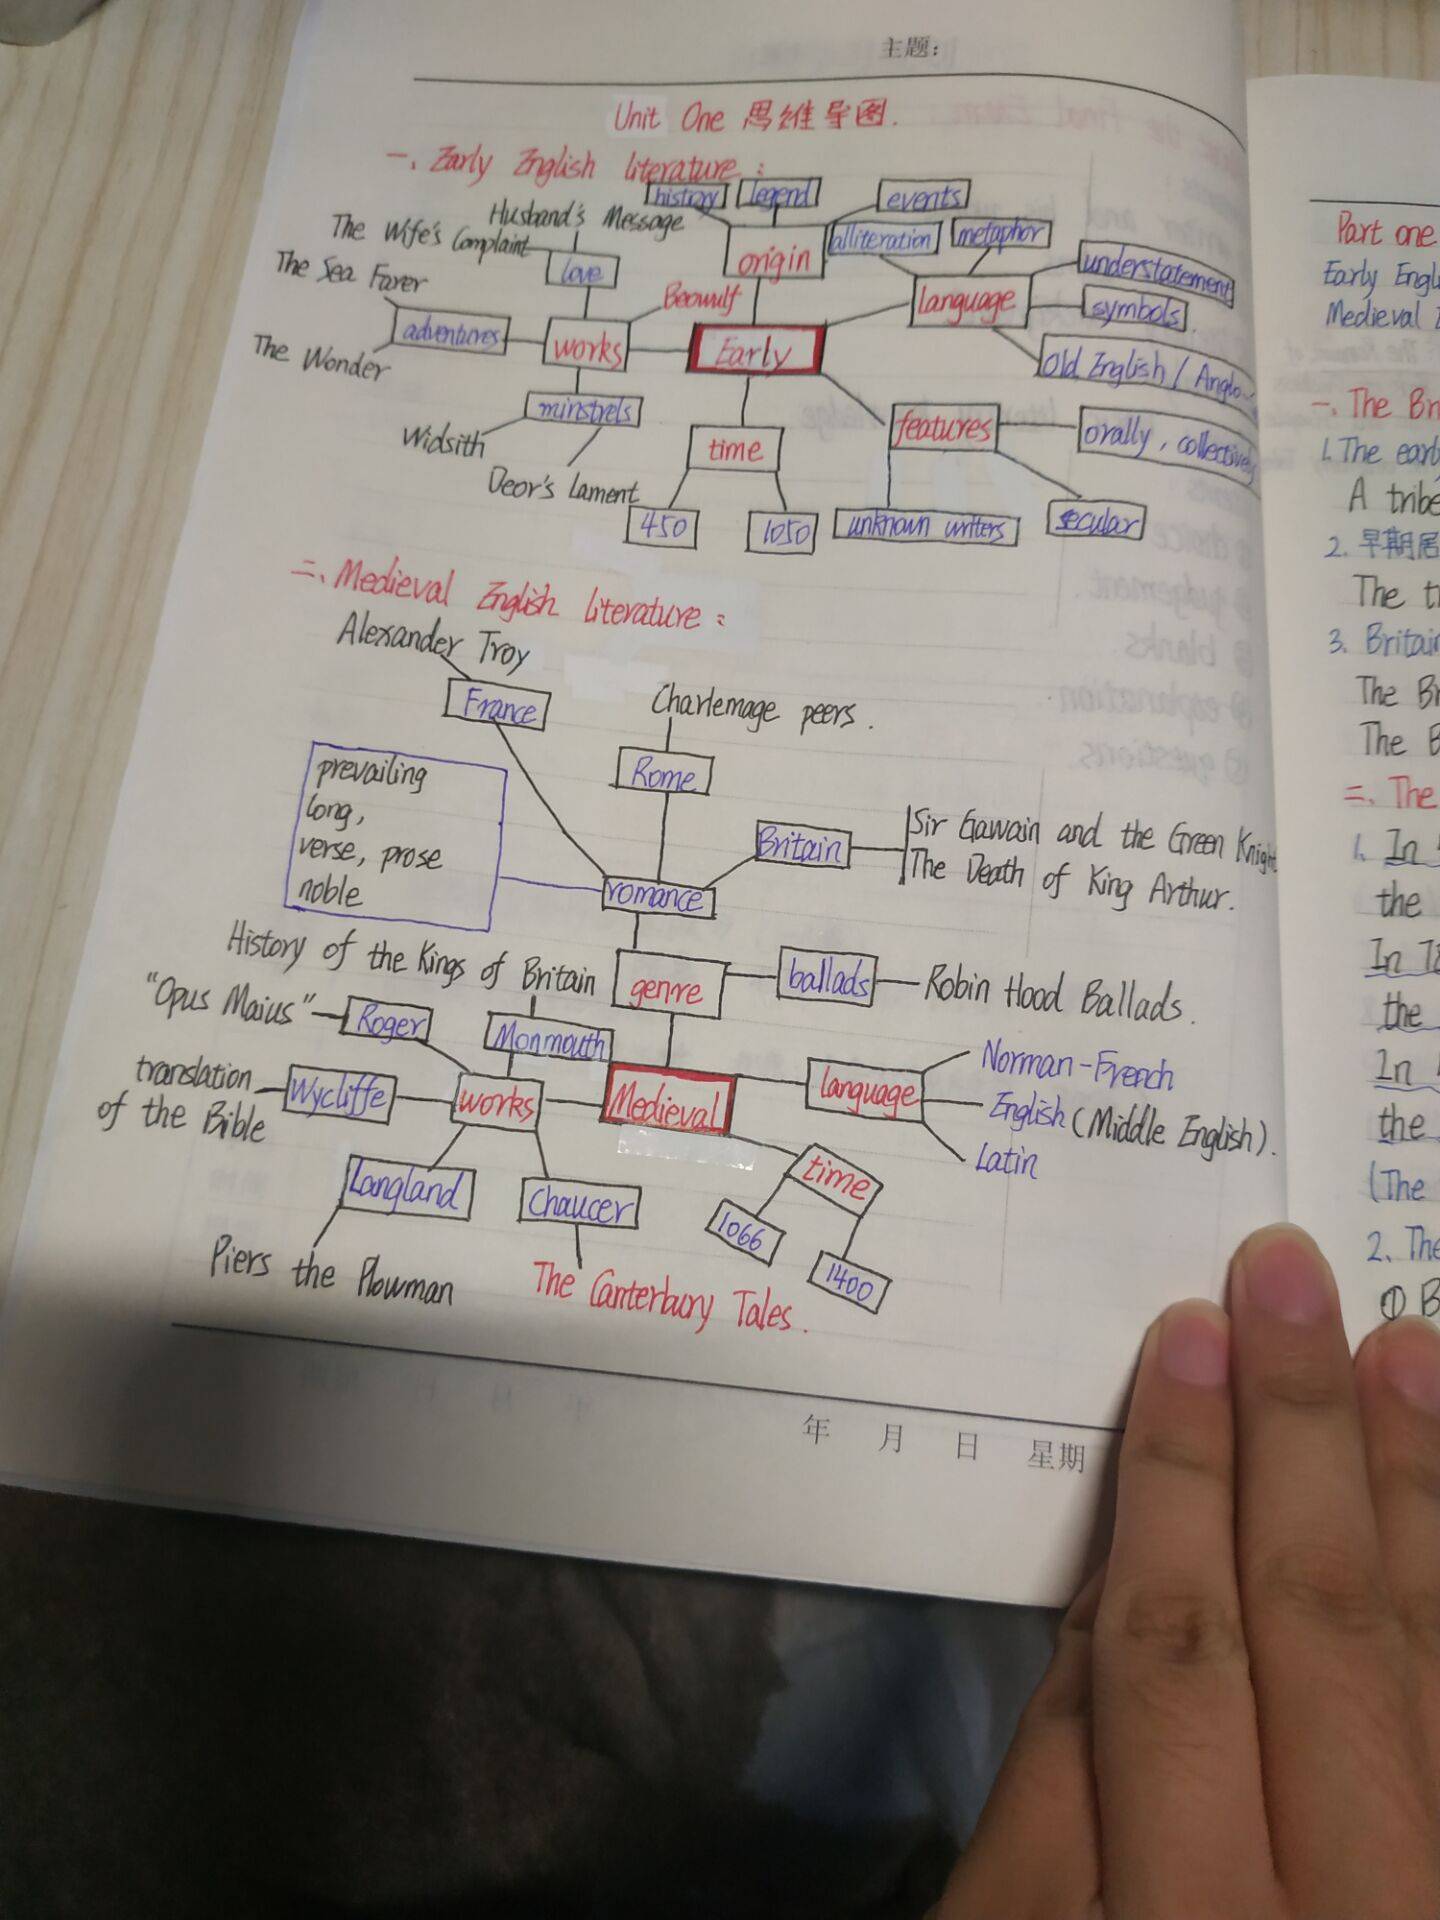 主题:
Unit One 思维导图.
一、Early English literature:
history
legend
events
Husband's Message
The Wife's Complaint
love
origin
alliteration
metaphor
understatement
The Sea Farer
Beowulf
language
symbols
adventures
works
Early
Old English / Anglo
The Wonder
minstrels
features
orally, collectively
Widsith
time
Deor's Lament
450
1050
unknown writers
secular
二、Medieval English literature:
Alexander Troy
France
Charlemage peers.
Rome
prevailing
long,
verse, prose
noble
Britain
Sir Gawain and the Green Knight
The Death of King Arthur.
romance
History of the Kings of Britain
genre
ballads
Robin Hood Ballads.
"Opus Maius"
Roger
Monmouth
translation
of the Bible
Wycliffe
works
Medieval
language
Norman-French
English (Middle English).
Latin
Langland
Chaucer
time
1066
1400
Piers the Plowman
The Canterbury Tales.
年 月 日 星期
Part one
Early Engl
Medieval
一、The Br
1. The early
A tribe
2. 早期居
The tr
3. Britain
The Br
The B
二、The
1. In
the
In
the
In
the
(The
2. The
① B